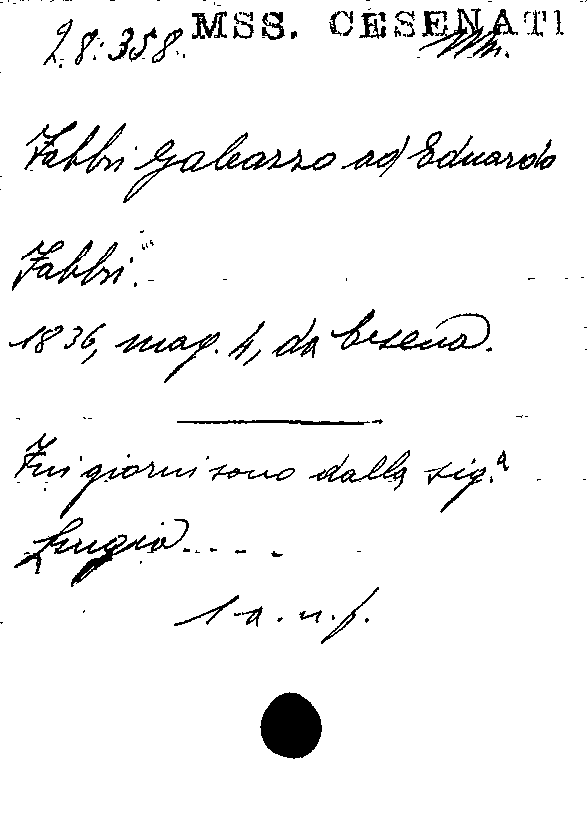 MSS. CESENATI
28.358.
Fabbri Galeazzo ad Eduardo
Fabbri.
1836, mag. 4, da Cesena.
Fui giorni sono dalla sig.ª
Luigia....
1 a. n. f.